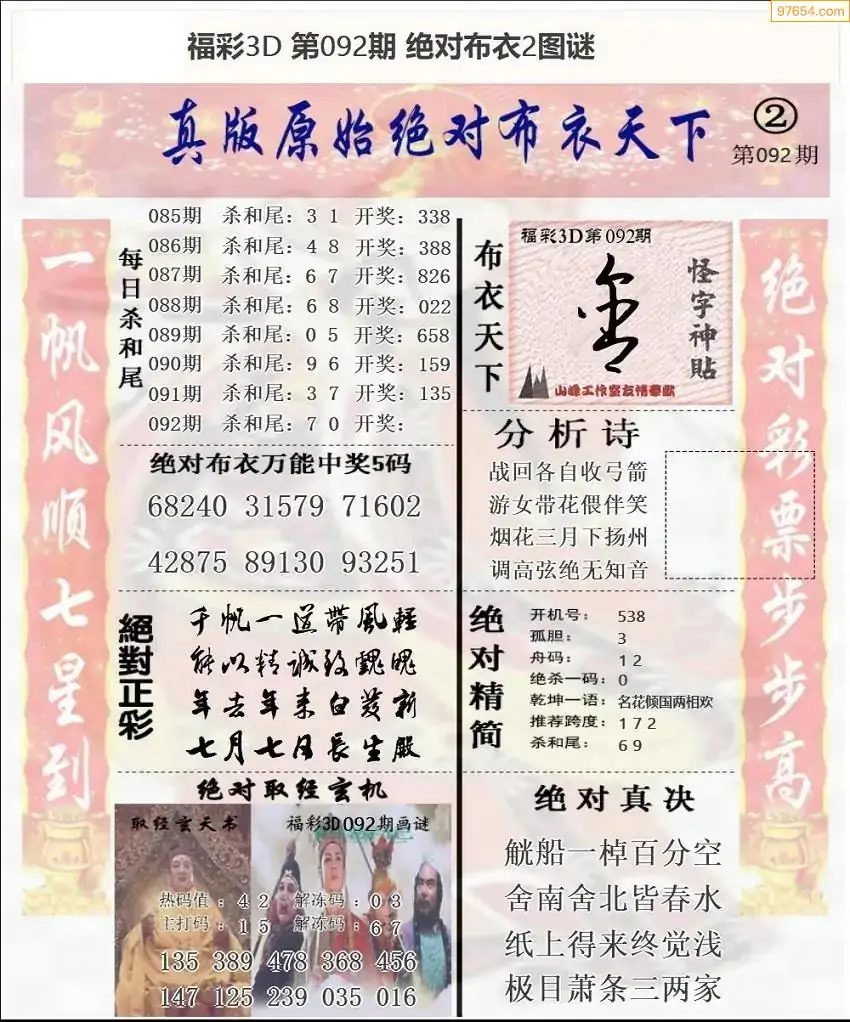 97654.com
福彩3D 第092期 绝对布衣2图谜
真版原始绝对布衣天下
②
第092期
一帆风顺七星到
每日杀和尾
085期 杀和尾：3 1 开奖：338
086期 杀和尾：4 8 开奖：388
087期 杀和尾：6 7 开奖：826
088期 杀和尾：6 8 开奖：022
089期 杀和尾：0 5 开奖：658
090期 杀和尾：9 6 开奖：159
091期 杀和尾：3 7 开奖：135
092期 杀和尾：7 0 开奖：
绝对布衣万能中奖5码
68240 31579 71602
42875 89130 93251
絕對正彩
千帆一道帶風輕
能以精诚致魂魄
年去年来白发新
七月七日長生殿
绝对取经玄机
取经玄天书
福彩3D092期画谜
热码值：4 2 解冻码：0 3
主打码：1 5 解冻码：6 7
135 389 478 368 456
147 125 239 035 016
布衣天下
福彩3D第092期
怪字神贴
山峰工作室友情奉献
分析诗
战回各自收弓箭
游女带花偎伴笑
烟花三月下扬州
调高弦绝无知音
绝对精简
开机号： 538
孤胆： 3
舟码： 1 2
绝杀一码：0
乾坤一语：名花倾国两相欢
推荐跨度：1 7 2
杀和尾： 6 9
绝对真决
觥船一棹百分空
舍南舍北皆春水
纸上得来终觉浅
极目萧条三两家
绝对彩票步步高